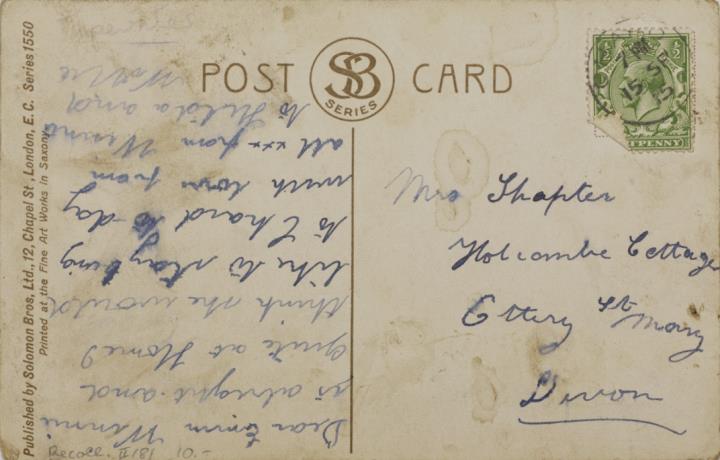 POST CARD
SB
SERIES
Published by Solomon Bros, Ltd., 12, Chapel St, London, E.C. Series 1550
Printed at the Fine Art Works in Saxony.
Dear Winnie
is alright and
quite at Home
think she would
like to stay
to Chard to-day
with love from
all xxx from Winnie
to Hilda and
Mrs Shapter
Holcombe Cottage
Ottery St Mary
Devon
PENNY
15 SP 15
Recoll. II/81 10.-